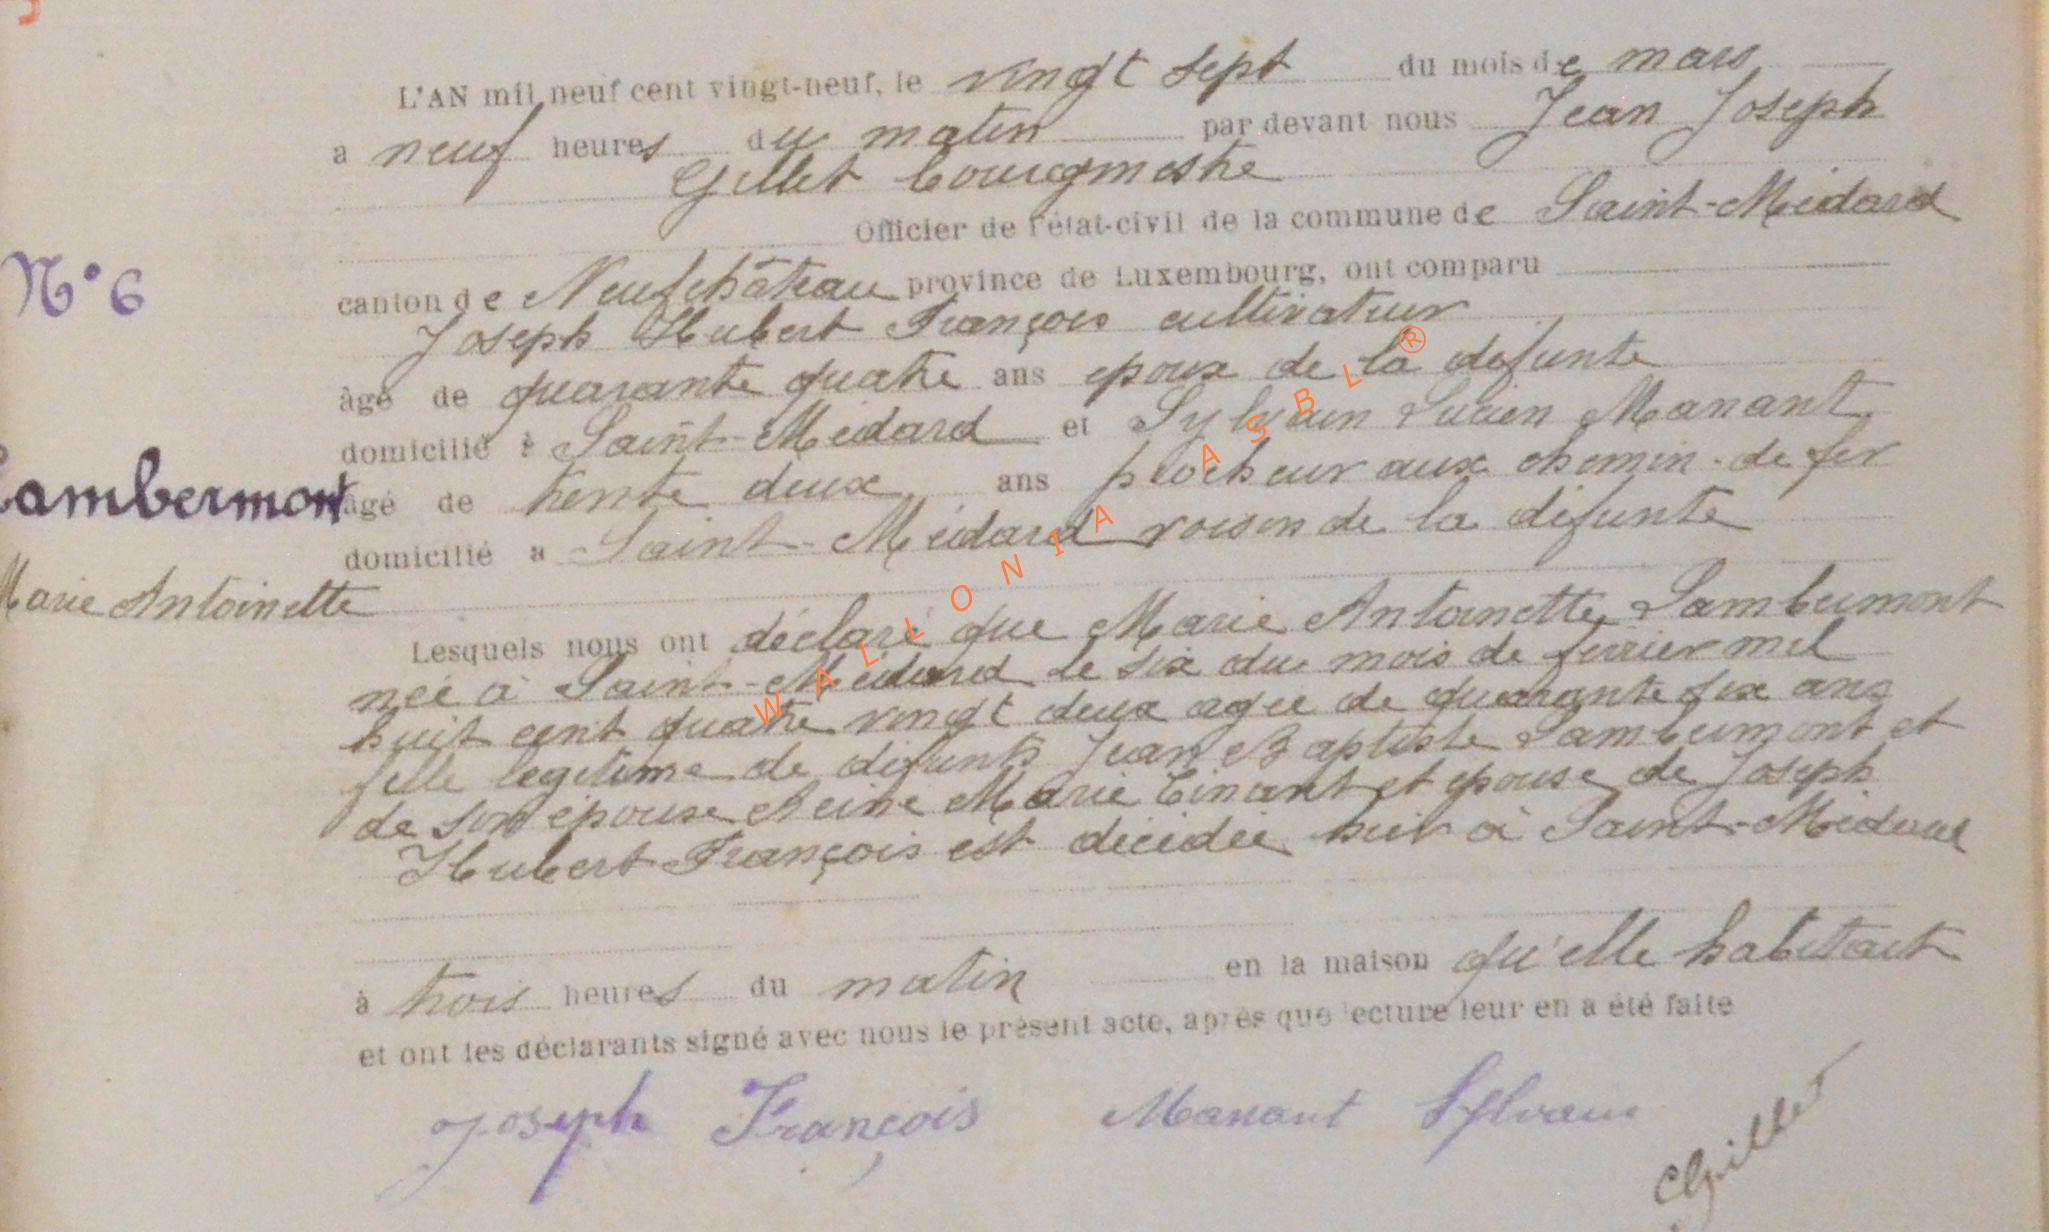 L'AN mil neuf cent vingt-neuf, le vingt sept du mois de mars
a neuf heures du matin par devant nous Jean Joseph
Gillet bourgmestre
Officier de l'état-civil de la commune de Saint-Médard
N° 6
canton de Neufchâteau province de Luxembourg, ont comparu
Joseph Hubert François cultivateur
âgé de quarante quatre ans epoux de la défunte
domicilié à Saint-Médard et Sylvain Lucien Manant
Lambermont
âgé de trente deux ans piocheur aux chemin-de fer
domicilié a Saint-Médard voisin de la défunte
Marie Antoinette
Lesquels nous ont déclaré que Marie Antoinette Lambermont
née à Saint-Médard le six du mois de février mil
huit cent quatre vingt deux agée de quarante six ans
fille légitime de défunts Jean Baptiste Lambermont et
de son épouse Reine Marie Tinant et epouse de Joseph
Hubert François est décédée hier à Saint-Médard
à trois heures du matin en la maison qu'elle habitait
et ont les déclarants signé avec nous le présent acte, après que lecture leur en a été faite
Joseph François Manant Sylvain
Gillet
WALLONIA ASBL ®